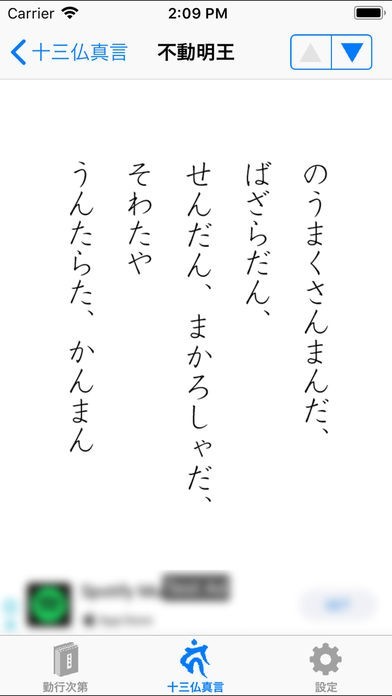 Carrier 2:09 PM
十三仏真言 不動明王
のうまくさんまんだ、
ばざらだん、
せんだん、まかろしゃだ、
そわたや
うんたらた、かんまん
勤行次第 十三仏真言 設定